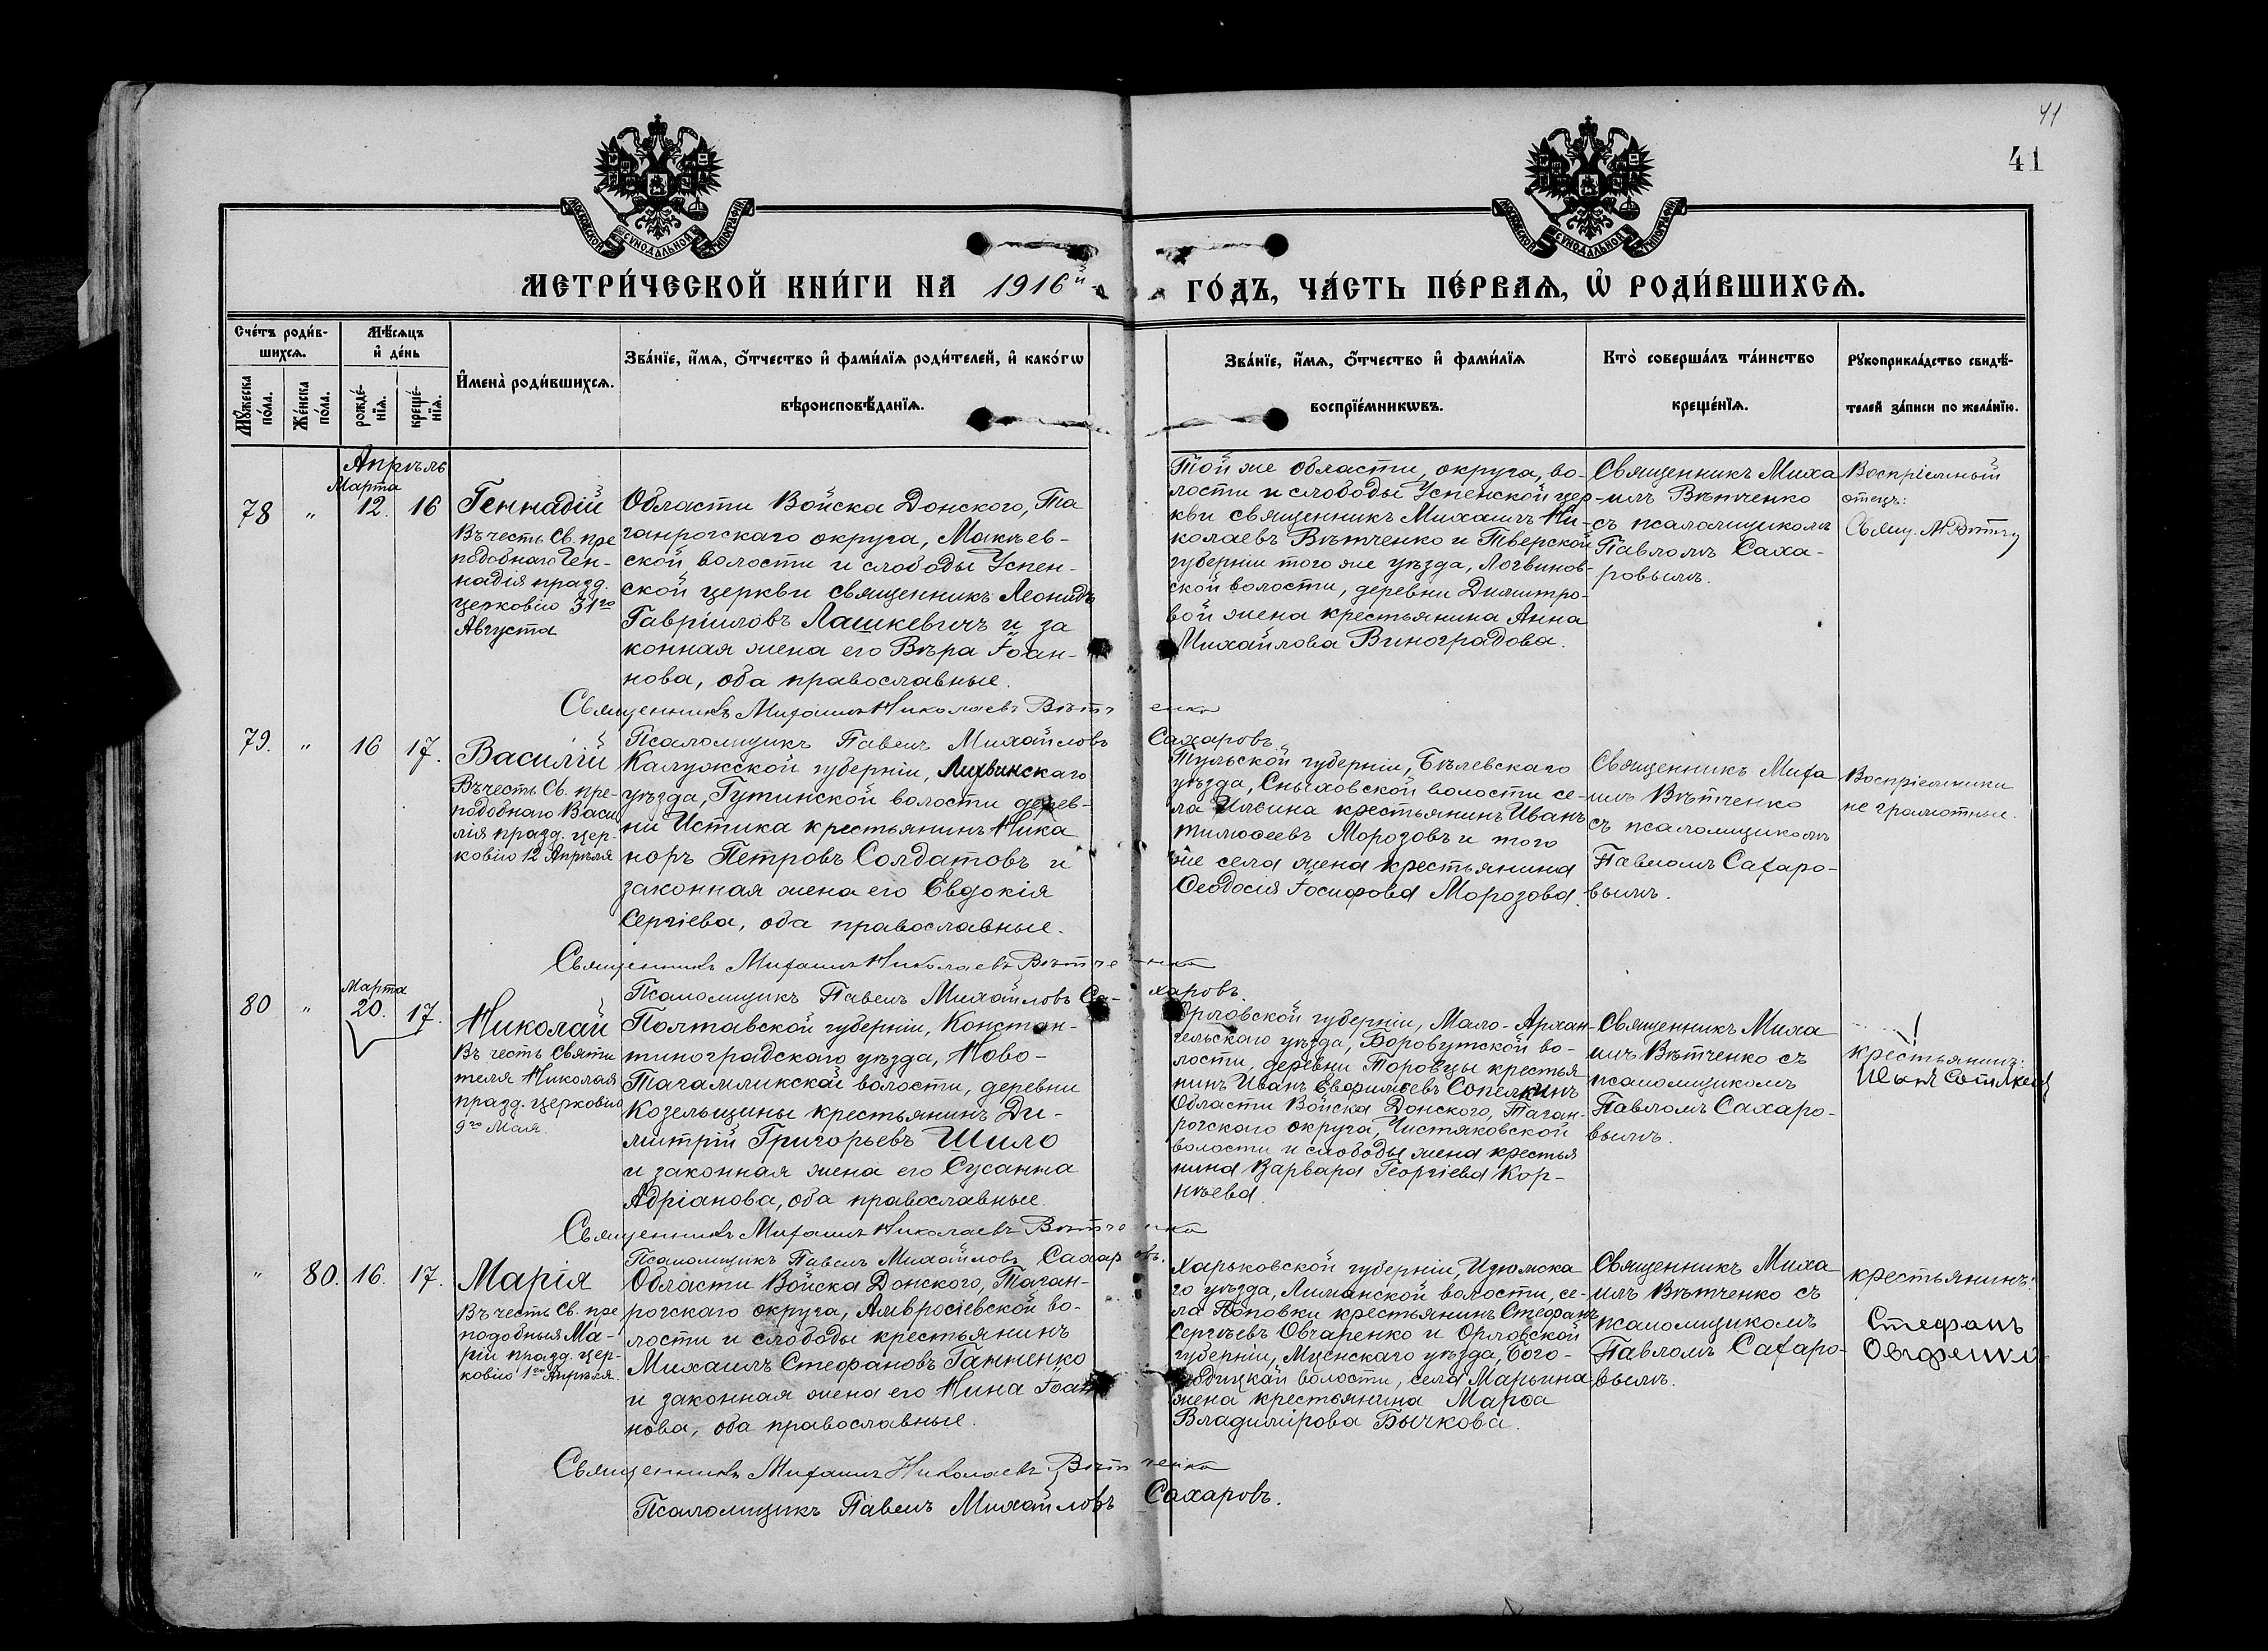 41
41
МОСКОВСКОЙ СѴНОДАЛЬНОЙ ТИПОГРАФІИ
МОСКОВСКОЙ СѴНОДАЛЬНОЙ ТИПОГРАФІИ
МЕТРИ́ЧЕСКОЙ КНИ́ГИ НА 1916й ГО́ДЪ, ЧА́СТЬ ПЕ́РВАѦ, Ѡ҆ РОДИ́ВШИХСѦ.
Сче́тъ роди́в-
шихсѧ.
Мꙋ́жеска по́ла.
Же́нска по́ла.
Мѣ́сѧцъ
и҆ де́нь
рожде́-
нїѧ.
креще́-
нїѧ.
И҆мена̀ роди́вшихсѧ.
Зва́нїе, и҆́мѧ, ѻ҆́тчество и҆ фами́лїѧ роди́телей, и҆ како́гѡ
вѣроисповѣ́данїѧ.
Зва́нїе, и҆́мѧ, ѻ҆́тчество и҆ фами́лїѧ
воспрїе́мникѡвъ.
Кто̀ соверша́лъ та́инство
креще́нїѧ.
Рꙋкоприкла́дство свидѣ́-
телей за́писи по жела́нїю.
Апрѣль
Марта
78 " 12. 16
Геннадій
Въ честь Св. пре
подобнаго Ген-
надія празд.
церковію 31го
Августа
Области Войска Донского, Та
ганрогскаго округа, Макѣев-
ской волости и слободы Успен-
ской церкви священникъ Леонидъ
Гавріиловъ Лашкевичъ и за
конная жена его Вѣра Іоан-
нова, оба православные.
Той же области, округа, во-
лости и слободы Успенской цер-
кви священникъ Михаилъ Ни-
колаевъ Вѣтченко и Тверской
губерніи того же уѣзда, Логвинов-
ской волости, деревни Димитро-
вой жена крестьянина Анна
Михайлова Виноградова.
Священникъ Миха
илъ Вѣтченко
съ псаломщикомъ
Павломъ Саха-
ровымъ.
Воспріемный
отецъ:
Свящ.
Священникъ Михаилъ Николаевъ Вѣтченко
Псаломщикъ Павелъ Михайловъ Сахаровъ.
79. " 16 17.
Василій
Въ честь Св. пре-
подобнаго Васи
лія празд. цер-
ковію 12 Апрѣля
Калужской губерніи, Лихвинскаго
уѣзда, Гутинской волости дерев-
ни Истика крестьянинъ Ника
норъ Петровъ Солдатовъ и
законная жена его Евдокія
Сергіева, оба православные.
Тульской губерніи, Бѣлевскаго
уѣзда, Сныховской волости се-
ла Ильина крестьянинъ Иванъ
Тимоѳеевъ Морозовъ и того
же села жена крестьянина
Ѳеодосія Іосифова Морозова.
Священникъ Миха
илъ Вѣтченко
съ псаломщикомъ
Павломъ Сахаро-
вымъ.
Воспріемники
не грамотные.
Священникъ Михаилъ Николаевъ Вѣтченко
Псаломщикъ Павелъ Михайловъ Сахаровъ.
Марта
80 " 20. 17.
Николай
Въ честь Святи
теля Николая
празд. церковію
9го Мая.
Полтавской губерніи, Констан-
тиноградскаго уѣзда, Ново-
Тагамликской волости, деревни
Козельщины крестьянинъ Ди-
митрій Григорьевъ Шило
и законная жена его Сусанна
Адріанова, оба православные.
Орловской губерніи, Мало-Архан-
гельскаго уѣзда, Боровутской во-
лости, деревни Торовцы крестья
нинъ Иванъ Евфиміевъ Сопелкинъ
Области Войска Донского, Таган-
рогскаго округа, Чистяковской
волости и слободы жена крестья
нина Варвара Георгіева Кор-
нѣева.
Священникъ Миха
илъ Вѣтченко съ
псаломщикомъ
Павломъ Сахаро-
вымъ.
крестьянинъ:
Священникъ Михаилъ Николаевъ Вѣтченко
Псаломщикъ Павелъ Михайловъ Сахаровъ.
" 80. 16. 17.
Марія
Въ честь Св. пре
подобныя Ма-
ріи празд. цер-
ковію 1го Апрѣля.
Области Войска Донского, Таган-
рогскаго округа, Амвросіевской во-
лости и слободы крестьянинъ
Михаилъ Стефановъ Ганненко
и законная жена его Нина Іоан
нова, оба православные.
Харьковской губерніи, Изюмска
го уѣзда, Лиманской волости, се-
ла Поповки крестьянинъ Стефанъ
Сергѣевъ Овчаренко и Орловской
губерніи, Мценскаго уѣзда, Бого-
родицкой волости, села Марьина
жена крестьянина Марѳа
Владимірова Бычкова.
Священникъ Миха
илъ Вѣтченко съ
псаломщикомъ
Павломъ Сахаро-
вымъ.
крестьянинъ:
Стефанъ
Священникъ Михаилъ Николаевъ Вѣтченко
Псаломщикъ Павелъ Михайловъ Сахаровъ.